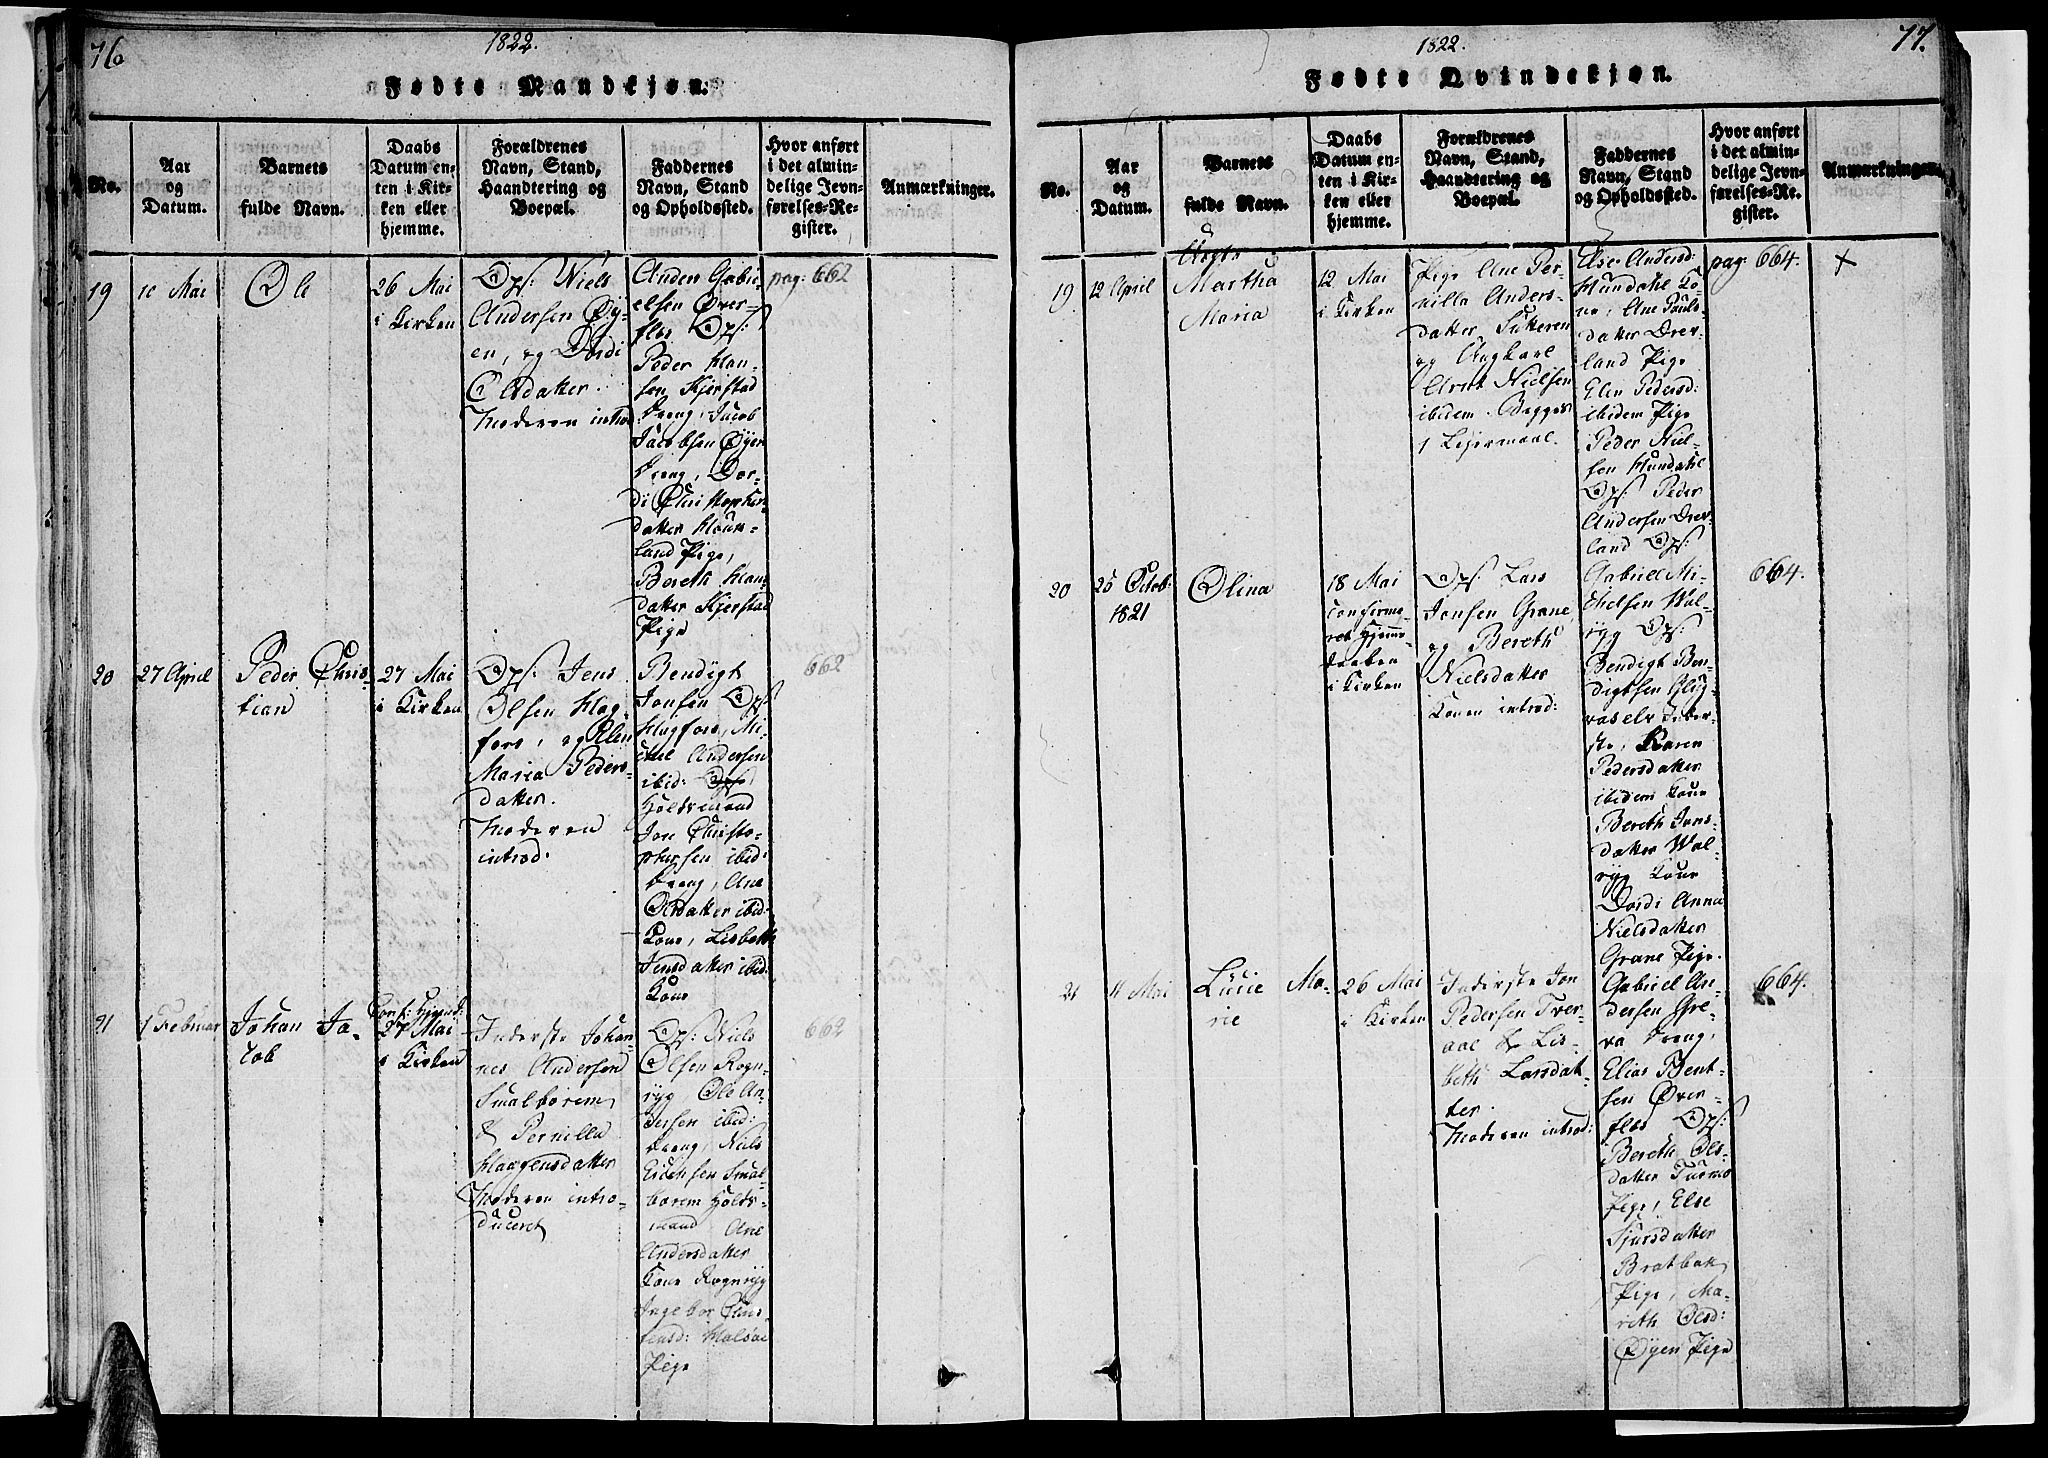 76
1822.
Fødte Mandkjøn.
No.
Aar
og
Datum.
Barnets
fulde Navn.
Daabs
Datum en-
ten i Kir-
ken eller
hjemme.
Forældrenes
Navn, Stand,
Haandtering og
Boepæl.
Faddernes
Navn, Stand
og Opholdssted.
Hvor anført
i det almin-
delige Jevn-
førelses-Re-
gister.
Anmærkninger.
19
10 Mai
Ole
26 Mai
i Kirken
Ops: Niels
Andersen Øy-
en, og Dordi
Olsdatter.
Moderen introd
Anders Gabri-
elsen Over-
floe Ops:
Peder Han-
sen Kjerstad
Dreng, Jacob
Jacobsen Øyen
Dreng, Dor-
di Christopher-
datter Houm-
land Pige,
Bereth Han-
datter Kjerstad
Pige
pag: 662
20
27 April
Peder Chris-
tian
27 Mai
i Kirken
Ops: Jens
Olsen Hag-
fors, og Elen
Maria Peders-
datter.
Moderen
introd:
Bendigt
Jonsen Ops
Hagfors, Mi-
chel Andersen
ibid: Ops
Holdsmand
Jon Christo-
phersen ibid:
Dreng, Ane
Olsdatter ibid:
Kone, Lisbeth
Jensdatter ibid:
Kone
662
21
1 Februar
Johan Ja-
cob
Conf: Hjemd:
27 Mai
i Kirken
Inderste Johan-
nes Andersen
Smalborem
& Pernilla
Haagensdatter
Moderen intro-
duceret
Ops: Niels
Olsen Rogn-
ryg Ole An-
dersen ibid:
Dreng, Niels
Erichsen Smal-
borem Holds-
mand Ane
Andersdatter
Kone Rognryg
Ingebor Chris-
tensd: Halsøe
Pige
662
77.
1822.
Fødte Qvindekjøn.
No.
Aar
og
Datum.
Barnets
fulde Navn.
Daabs
Datum en-
ten i Kir-
ken eller
hjemme.
Forældrenes
Navn, Stand,
Haandtering og
Boepæl.
Faddernes
Navn, Stand
og Opholdssted.
Hvor anført
i det almin-
delige Jevn-
førelses-Re-
gister.
Anmærkninger.
19
12 April
Uægte
Martha
Maria
12 Mai
i Kirken
Pige Ane Per-
nilla Anders-
datter, Sutteren
og Ungkarl
Arnt Nielsen
ibidem. Begges
1 Lejermaal.
Else Andersd:
Hundahl Ko-
ne, Ane Pouls-
datter Drev-
land Pige
Elen Pedersd:
ibidem Pige
Peder Niel-
sen Hundahl
Ops: Peder
Andersen Drev-
land Ops:
pag: 664.
+
20
25 Octob:
1821
Olina
18 Mai
Confirme-
ret Hjemme-
daaben
i Kirken
Ops: Lars
Jonsen Grane
og Bereth
Nielsdatter
Konen introd:
Gabriel Mi-
chelsen Wal-
ryg Ops:
Bendigt Ben-
digtsen Glug-
vaselv Inder-
ste, Karen
Pedersdatter
ibidem Kone
Bereth Jons-
datter Wal-
ryg Kone
Dordi Anna
Nielsdatter
Grane Pige.
664.
21
11 Mai
Lucie Ma-
rie
26 Mai
i Kirken
Inderste Jon
Pedersen Tver-
aae & Lis-
beth Larsdat-
ter.
Moderen introd:
Gabriel An-
dersen Gre-
va Dreng,
Elias Bent-
sen Over-
floe Ops:
Bereth Ols-
datter Turmo
Pige, Else
Sjursdatter
Bratbak
Pige, Ma-
reth Olsd:
Øyen Pige
664.